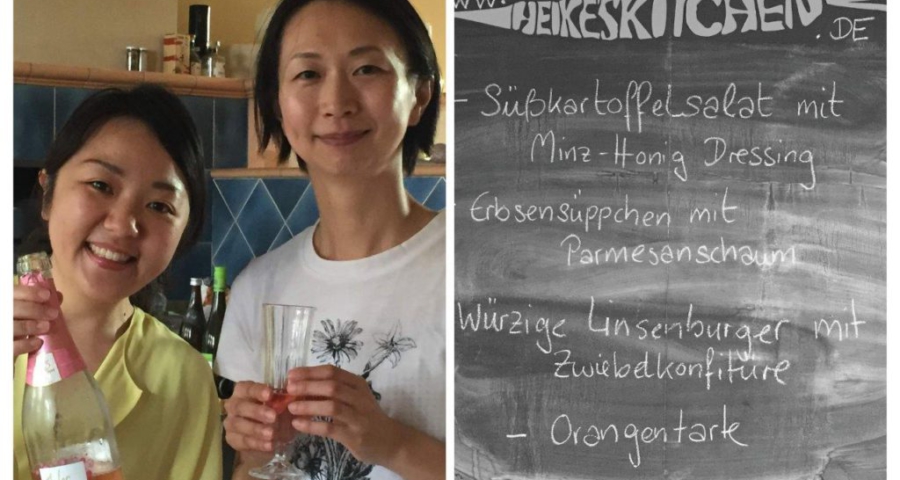 HEIKESKITCHEN
.DE
- Süßkartoffelsalat mit
Minz-Honig Dressing
- Erbsensüppchen mit
Parmesanschaum
Würzige Linsenburger mit
Zwiebelkonfitüre
- Orangentarte